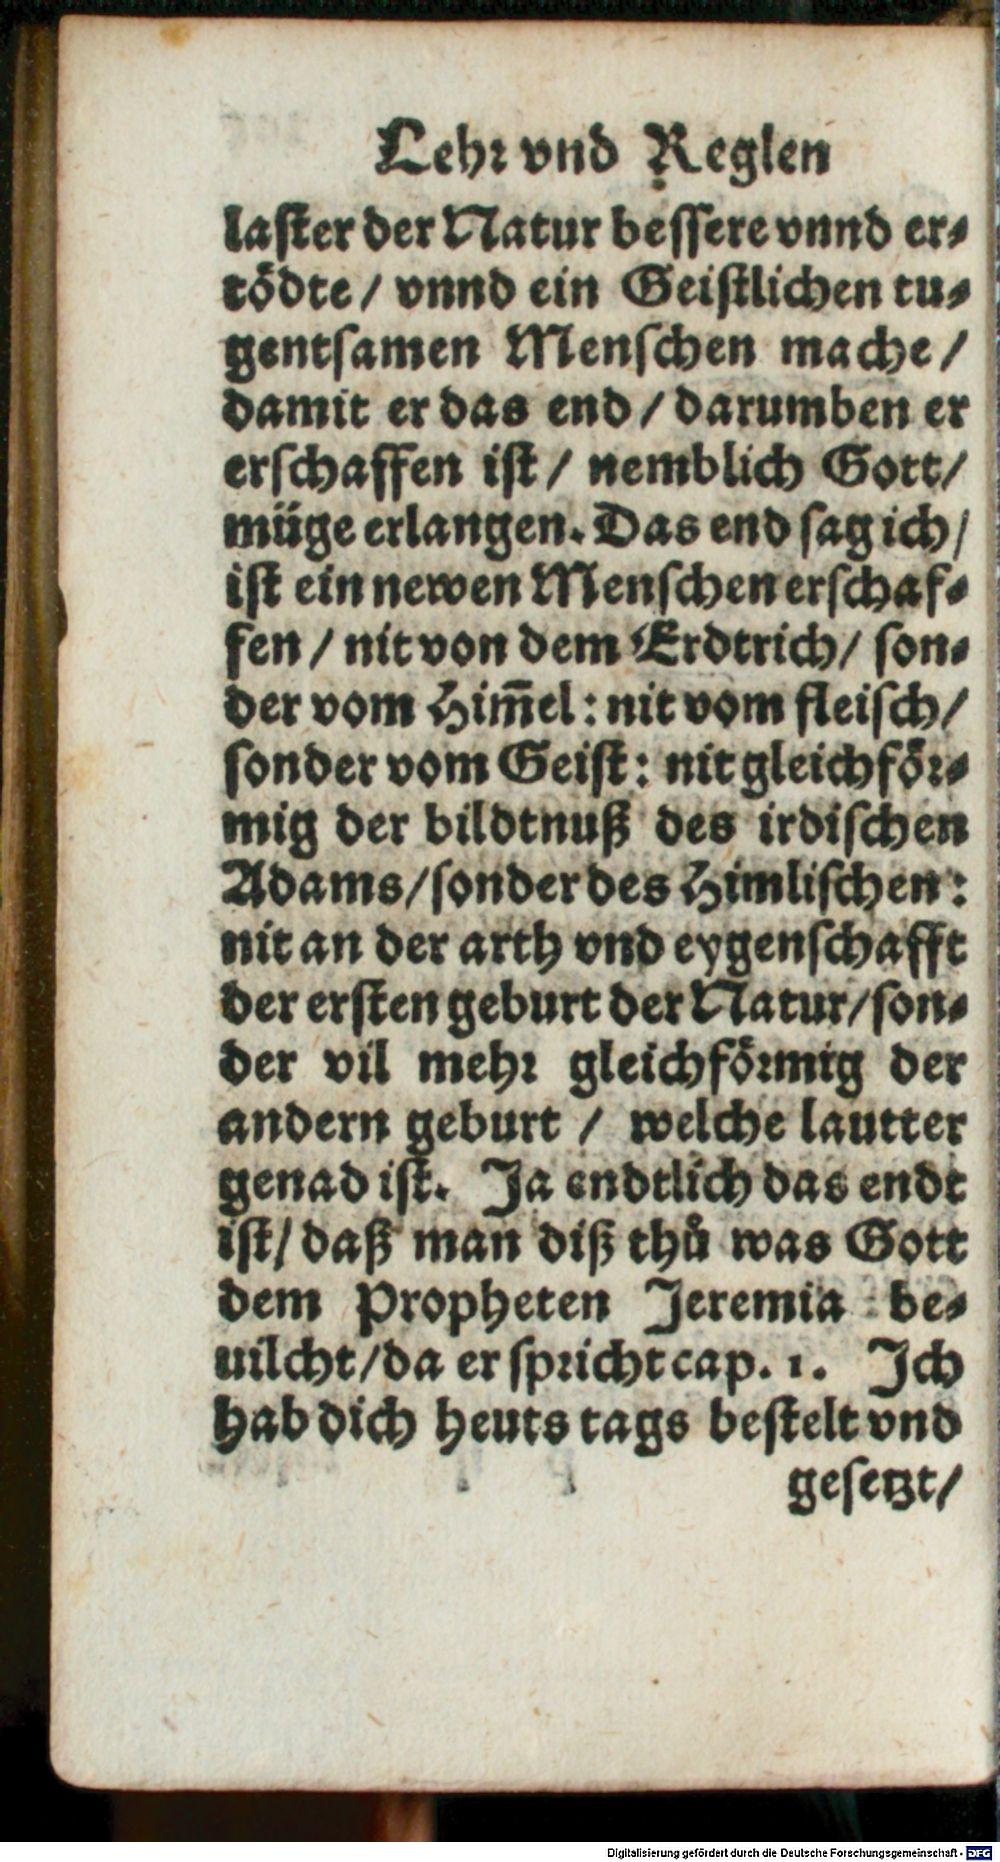 Lehr vnd Reglen
laster der Natur bessere vnnd er-
tödte / vnnd ein Geistlichen tu-
gentsamen Menschen mache /
damit er das end / darumben er
erschaffen ist / nemblich Gott /
müge erlangen. Das end sag ich /
ist ein newen Menschen erschaf-
fen / nit von dem Erdtrich / son-
der vom Him̄el : nit vom fleisch /
sonder vom Geist : nit gleichför-
mig der bildtnuß des irdischen
Adams / sonder des Himlischen :
nit an der arth vnd eygenschafft
der ersten geburt der Natur / son-
der vil mehr gleichförmig der
andern geburt / welche lautter
genad ist. Ja endtlich das endt
ist / daß man diß thů was Gott
dem Propheten Jeremia be-
uilcht / da er spricht cap. 1. Ich
hab dich heuts tags bestelt vnd
gesetzt /
Digitalisierung gefördert durch die Deutsche Forschungsgemeinschaft - DFG